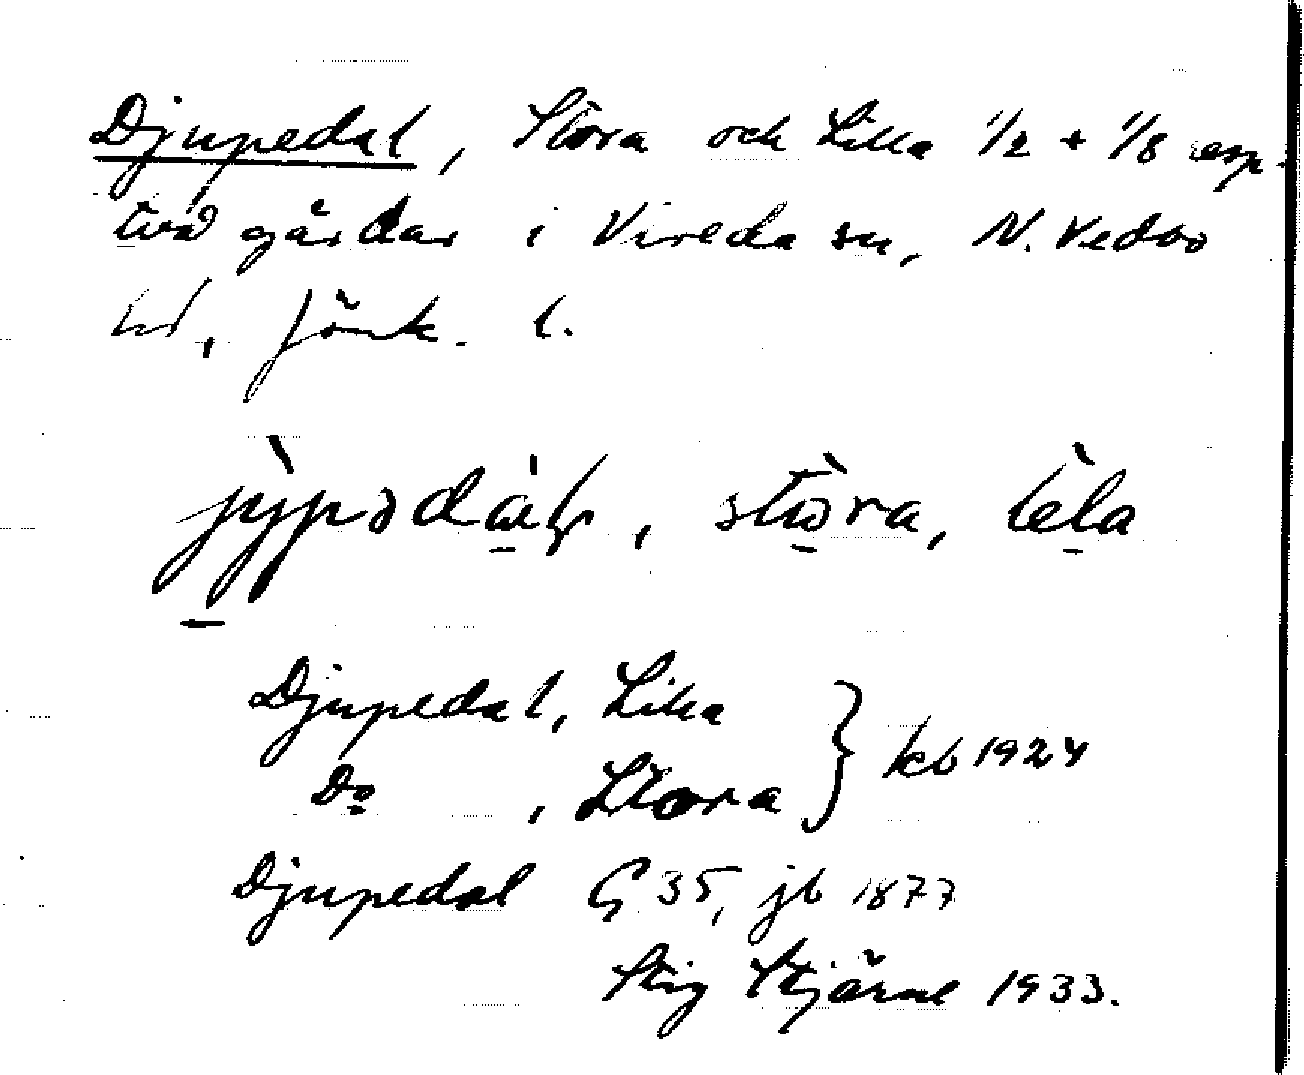 Djupedal, Stora och Lilla 1/2 + 1/8 resp.
två gårdar i Vireda sn, N. Vedbo
hd, Jönk. l.
stòra, lèla
Djupedal, Lilla } kb 1924
Do , Stora
Djupedal G 35, jb 1877
Stig Stjärne 1933.